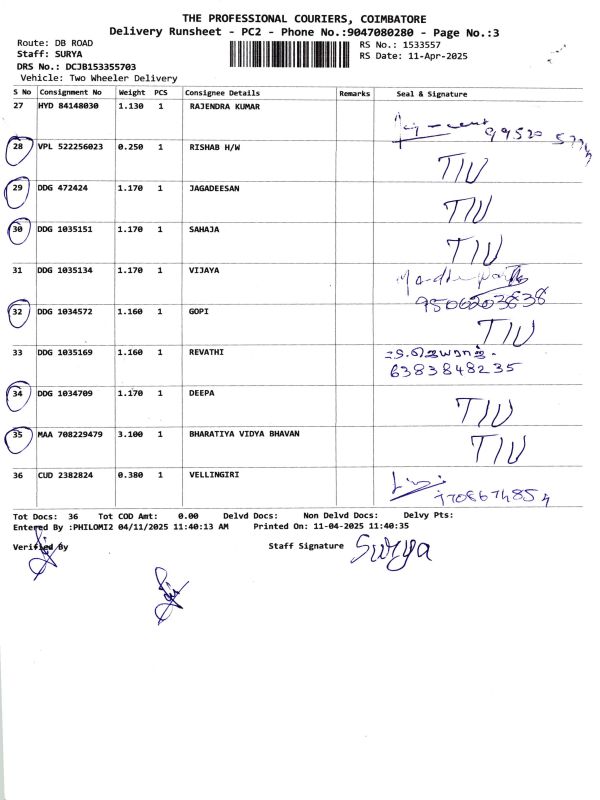 THE PROFESSIONAL COURIERS, COIMBATORE
Delivery Runsheet - PC2 - Phone No.:9047080280 - Page No.:3
Route: DB ROAD RS No.: 1533557
Staff: SURYA RS Date: 11-Apr-2025
DRS No.: DCJB153355703
Vehicle: Two Wheeler Delivery
S No Consignment No Weight PCS Consignee Details Remarks Seal & Signature
27 HYD 84148030 1.130 1 RAJENDRA KUMAR
28 VPL 522256023 0.250 1 RISHAB H/W TIU
29 DDG 472424 1.170 1 JAGADEESAN TIU
30 DDG 1035151 1.170 1 SAHAJA TIU
31 DDG 1035134 1.170 1 VIJAYA
32 DDG 1034572 1.160 1 GOPI TIU
33 DDG 1035169 1.160 1 REVATHI
6383848235
34 DDG 1034709 1.170 1 DEEPA TIU
35 MAA 708229479 3.100 1 BHARATIYA VIDYA BHAVAN TIU
36 CUD 2382824 0.380 1 VELLINGIRI
Tot Docs: 36 Tot COD Amt: 0.00 Delvd Docs: Non Delvd Docs: Delvy Pts:
Entered By :PHILOMI2 04/11/2025 11:40:13 AM Printed On: 11-04-2025 11:40:35
Verified By Staff Signature Surya